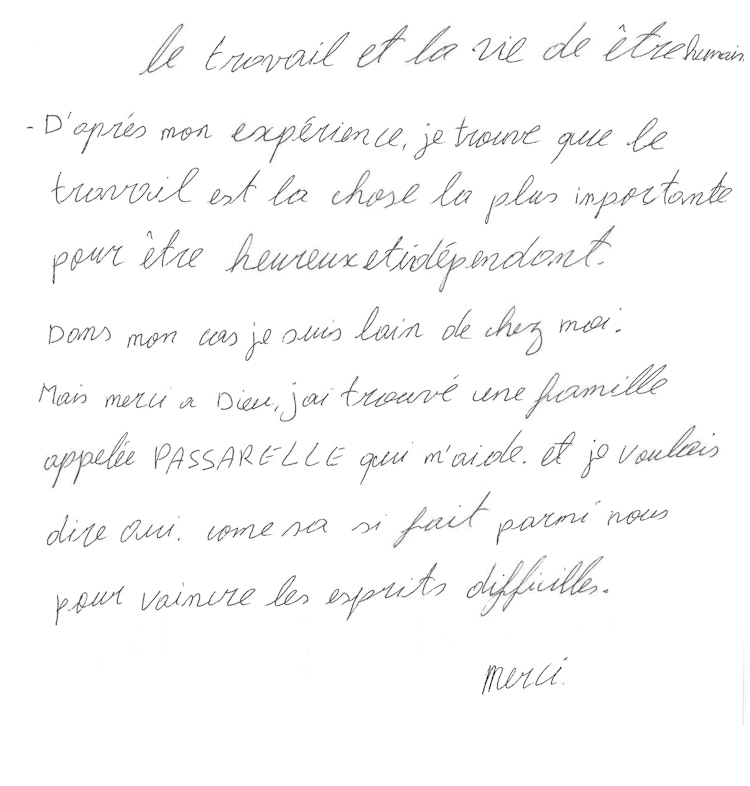 le travail et la vie de être humain
- D'aprés mon expérience, je trouve que le
travail est la chose la plus inportante
pour être heureux et idépendant.
Dans mon cas je suis loin de chez moi.
Mais merci a Dieu, j'ai trouvé une famille
appelée PASSARELLE qui m'aide. et je voulais
dire oui. come sa si fait parmi nous
pour vaincre les esprits difficilles.
Merci.